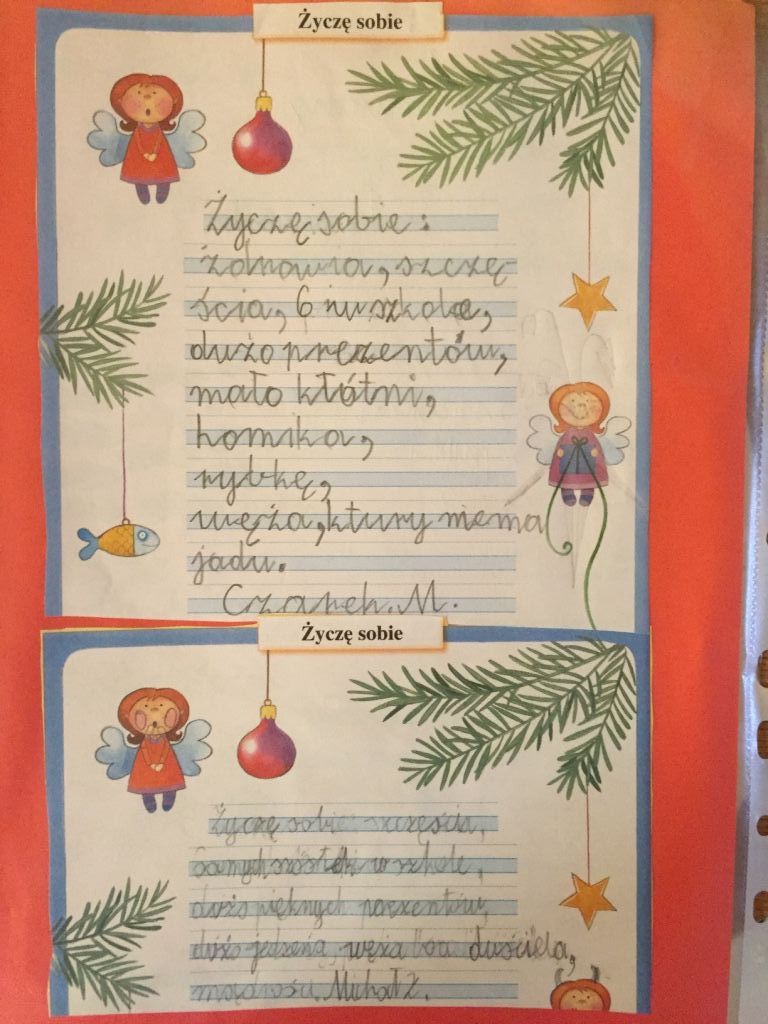 Życzę sobie
Życzę sobie:
żdrowia, szczę
ścia, 6 w szkole,
dużo prezentów,
mało kłótni,
homika,
rybkę,
węża, ktury niema
jadu.
Czarek. M.
Życzę sobie
Życzę sobie szczęścia,
samych szóstek w szkole,
dużo pięknych prezentów,
dużo jedzena, węża boa duściela,
mądrości. Michał Ż.